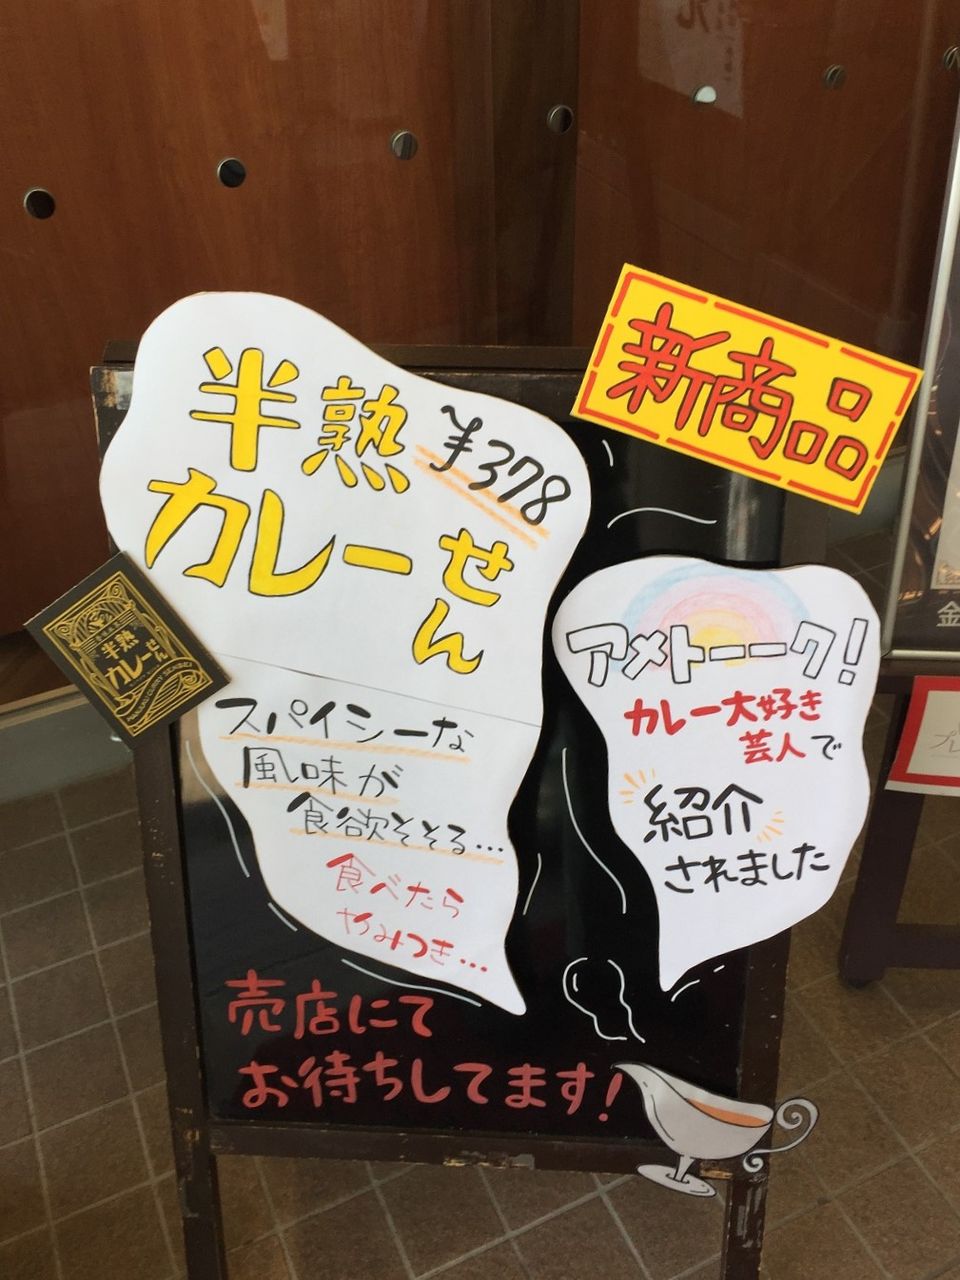 新商品
半熟
¥378
カレーせん
半熟
カレーせん
スパイシーな
風味が
食欲そそる…
食べたら
やみつき…
アメトーーク!
カレー大好き
芸人で
紹介
されました
売店にて
お待ちしてます!
金
プレ